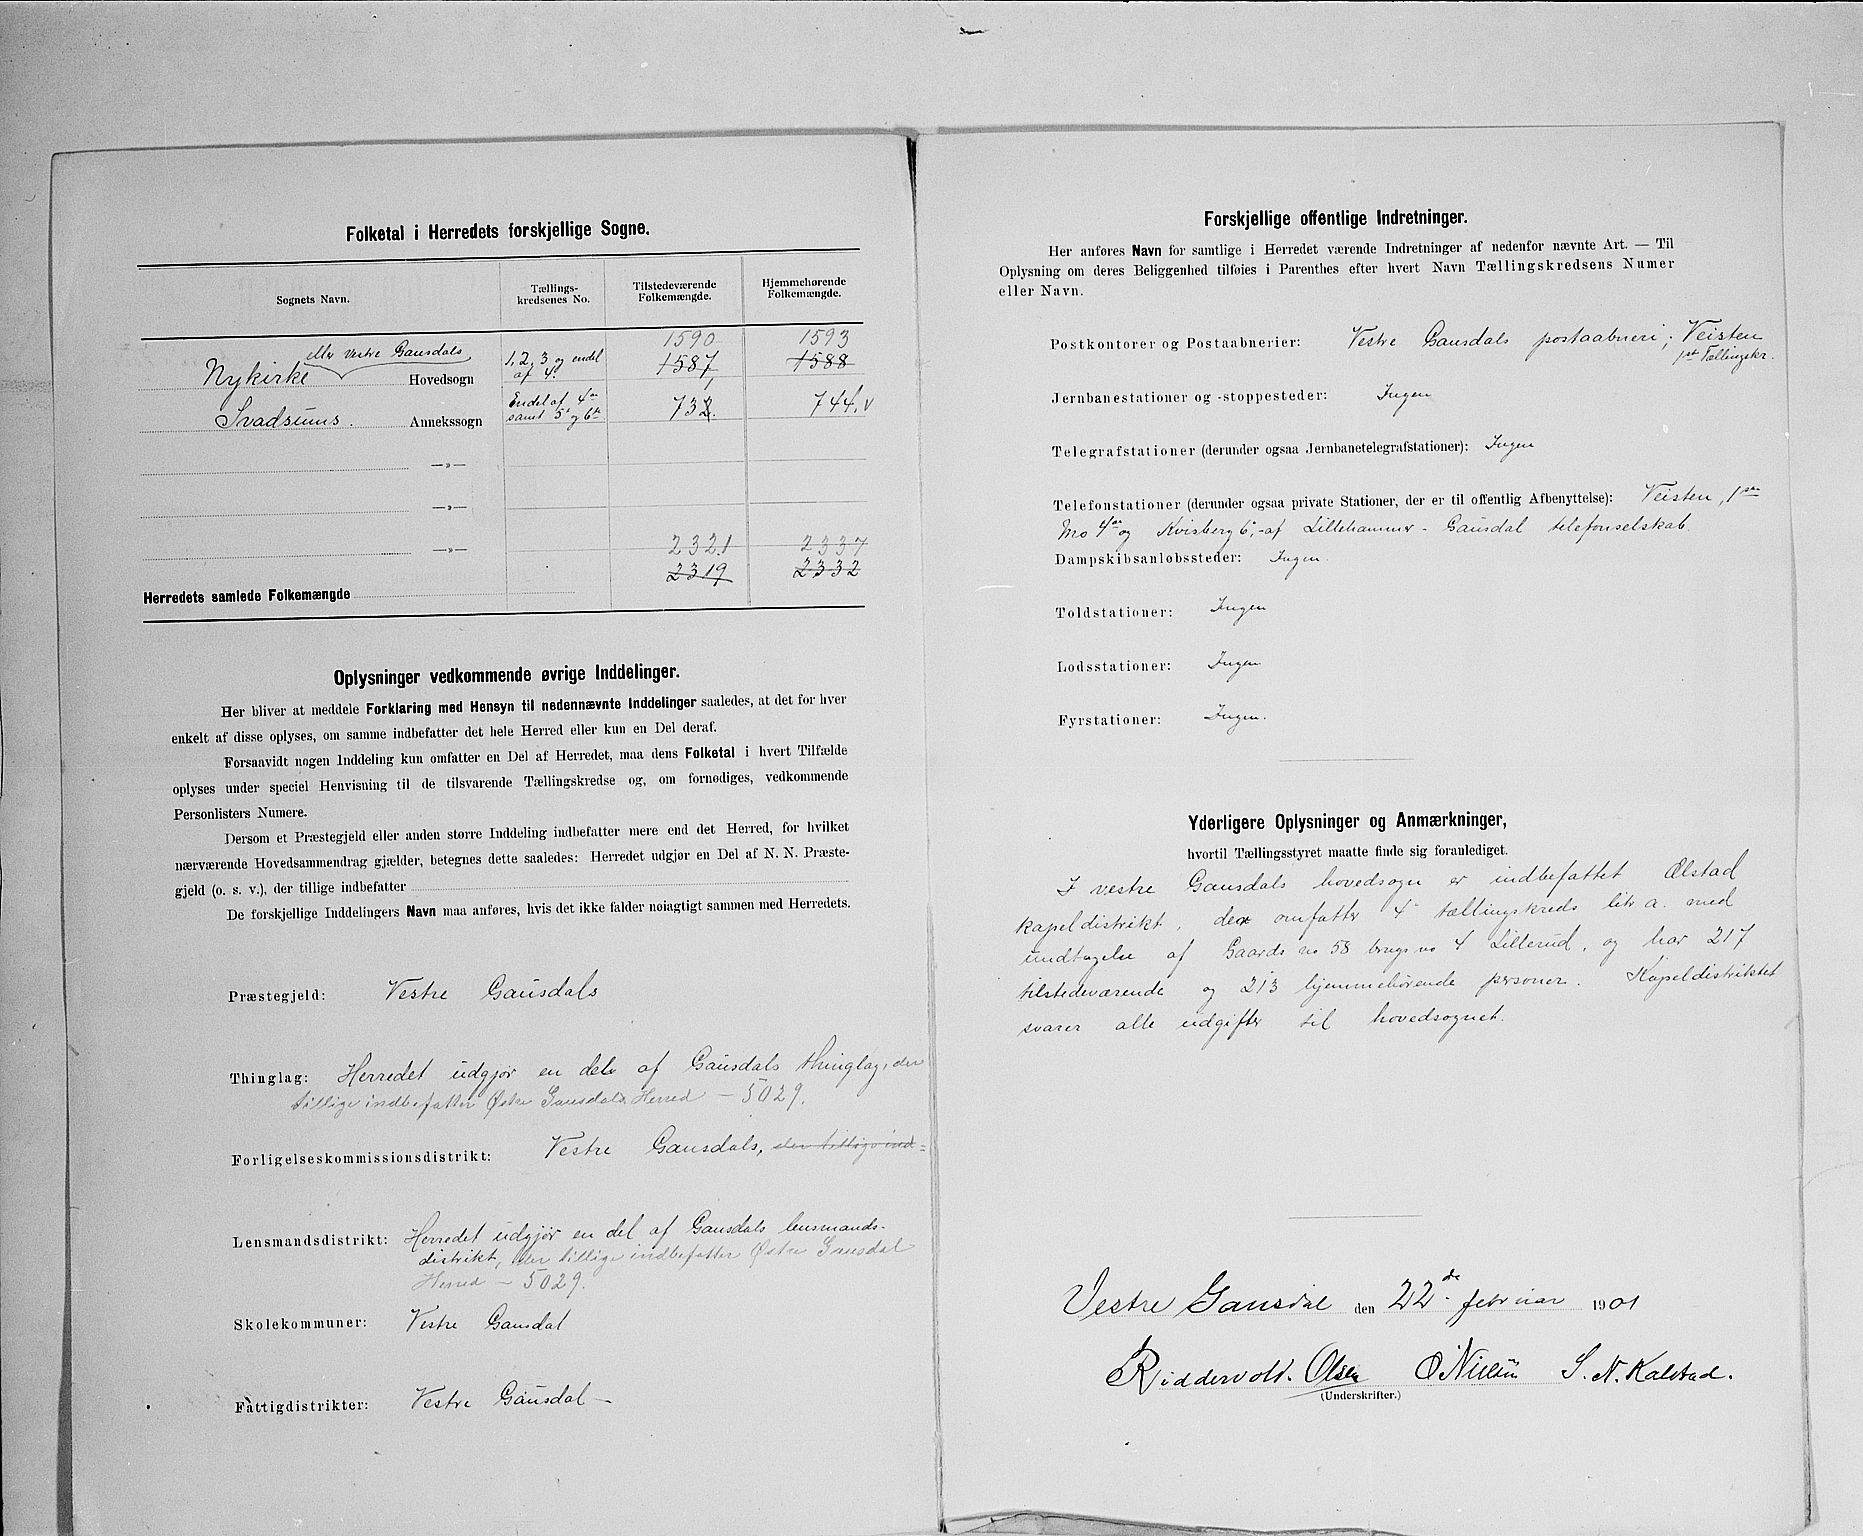 Folketal i Herredets forskjellige Sogne.
Sognets Navn.
Tællings-
kredsenes No.
Tilstedeværende
Folkemængde.
Hjemmehørende
Folkemængde.
1590
1593
eller Vestre Gausdals
Nykirke Hovedsogn
1, 2, 3 og endel
af 4.
1587
1588
Svadsums. Annekssogn
Endel af 4de
samt 5 og 6te
732.
744. v
—»—
—»—
—»— 2321 2337
2319 2332
Herredets samlede Folkemængde
Oplysninger vedkommende øvrige Inddelinger.
Her bliver at meddele Forklaring med Hensyn til nedennævnte Inddelinger saaledes, at det for hver
enkelt af disse oplyses, om samme indbefatter det hele Herred eller kun en Del deraf.
Forsaavidt nogen Inddeling kun omfatter en Del af Herredet, maa dens Folketal i hvert Tilfælde
oplyses under speciel Henvisning til de tilsvarende Tællingskredse og, om fornødiges, vedkommende
Personlisters Numere.
Dersom et Præstegjeld eller anden større Inddeling indbefatter mere end det Herred, for hvilket
nærværende Hovedsammendrag gjælder, betegnes dette saaledes: Herredet udgjør en Del af N. N. Præste-
gjeld (o. s. v.), der tillige indbefatter
De forskjellige Inddelingers Navn maa anføres, hvis det ikke falder nøiagtigt sammen med Herredets.
Præstegjeld: Vestre Gausdals
Thinglag: Herredet udgjør en del af Gausdals thinglag, der
tillige indbefatter Østre Gausdals Herred — 5029.
Forligelseskommissionsdistrikt: Vestre Gausdals, der tillige ind=
Lensmandsdistrikt: Herredet udgjør en del af Gausdals lensmands-
distrikt, der tillige indbefatter Østre Gausdal
Herred — 5029.
Skolekommuner: Vestre Gausdal
Fattigdistrikter: Vestre Gausdal —
Forskjellige offentlige Indretninger.
Her anføres Navn for samtlige i Herredet værende Indretninger af nedenfor nævnte Art. — Til
Oplysning om deres Beliggenhed tilføies i Parenthes efter hvert Navn Tællingskredsens Numer
eller Navn.
Postkontorer og Postaabnerier: Vestre Gausdals postaabneri; Veisten
1ste Tællingskr.
Jernbanestationer og -stoppesteder: Ingen
Telegrafstationer (derunder ogsaa Jernbanetelegrafstationer): Ingen
Telefonstationer (derunder ogsaa private Stationer, der er til offentlig Afbenyttelse): Veisten, 1ste
Mo 4de og Kvisberg 6, af Lillehammer - Gausdal telefonselskab.
Dampskibsanløbssteder: Ingen.
Toldstationer: Ingen
Lodsstationer: Ingen
Fyrstationer: Ingen.
Yderligere Oplysninger og Anmærkninger,
hvortil Tællingsstyret maatte finde sig foranlediget.
I vestre Gausdals hovedsogn er indbefattet Ølstad
kapeldistrikt, der omfatter 4 tællingskreds litr a. med
undtagelse af Gaards no 58 brugs no 4 Lillerud, og har 217
tilstedeværende og 213 hjemmehørende personer. Kapeldistriktet
svarer alle udgifter til hovedsognet.
Vestre Gausdal den 22de februar 1901
Riddervold. Olsen O Nielsen S. N. Kalstad.
(Underskrifter.)